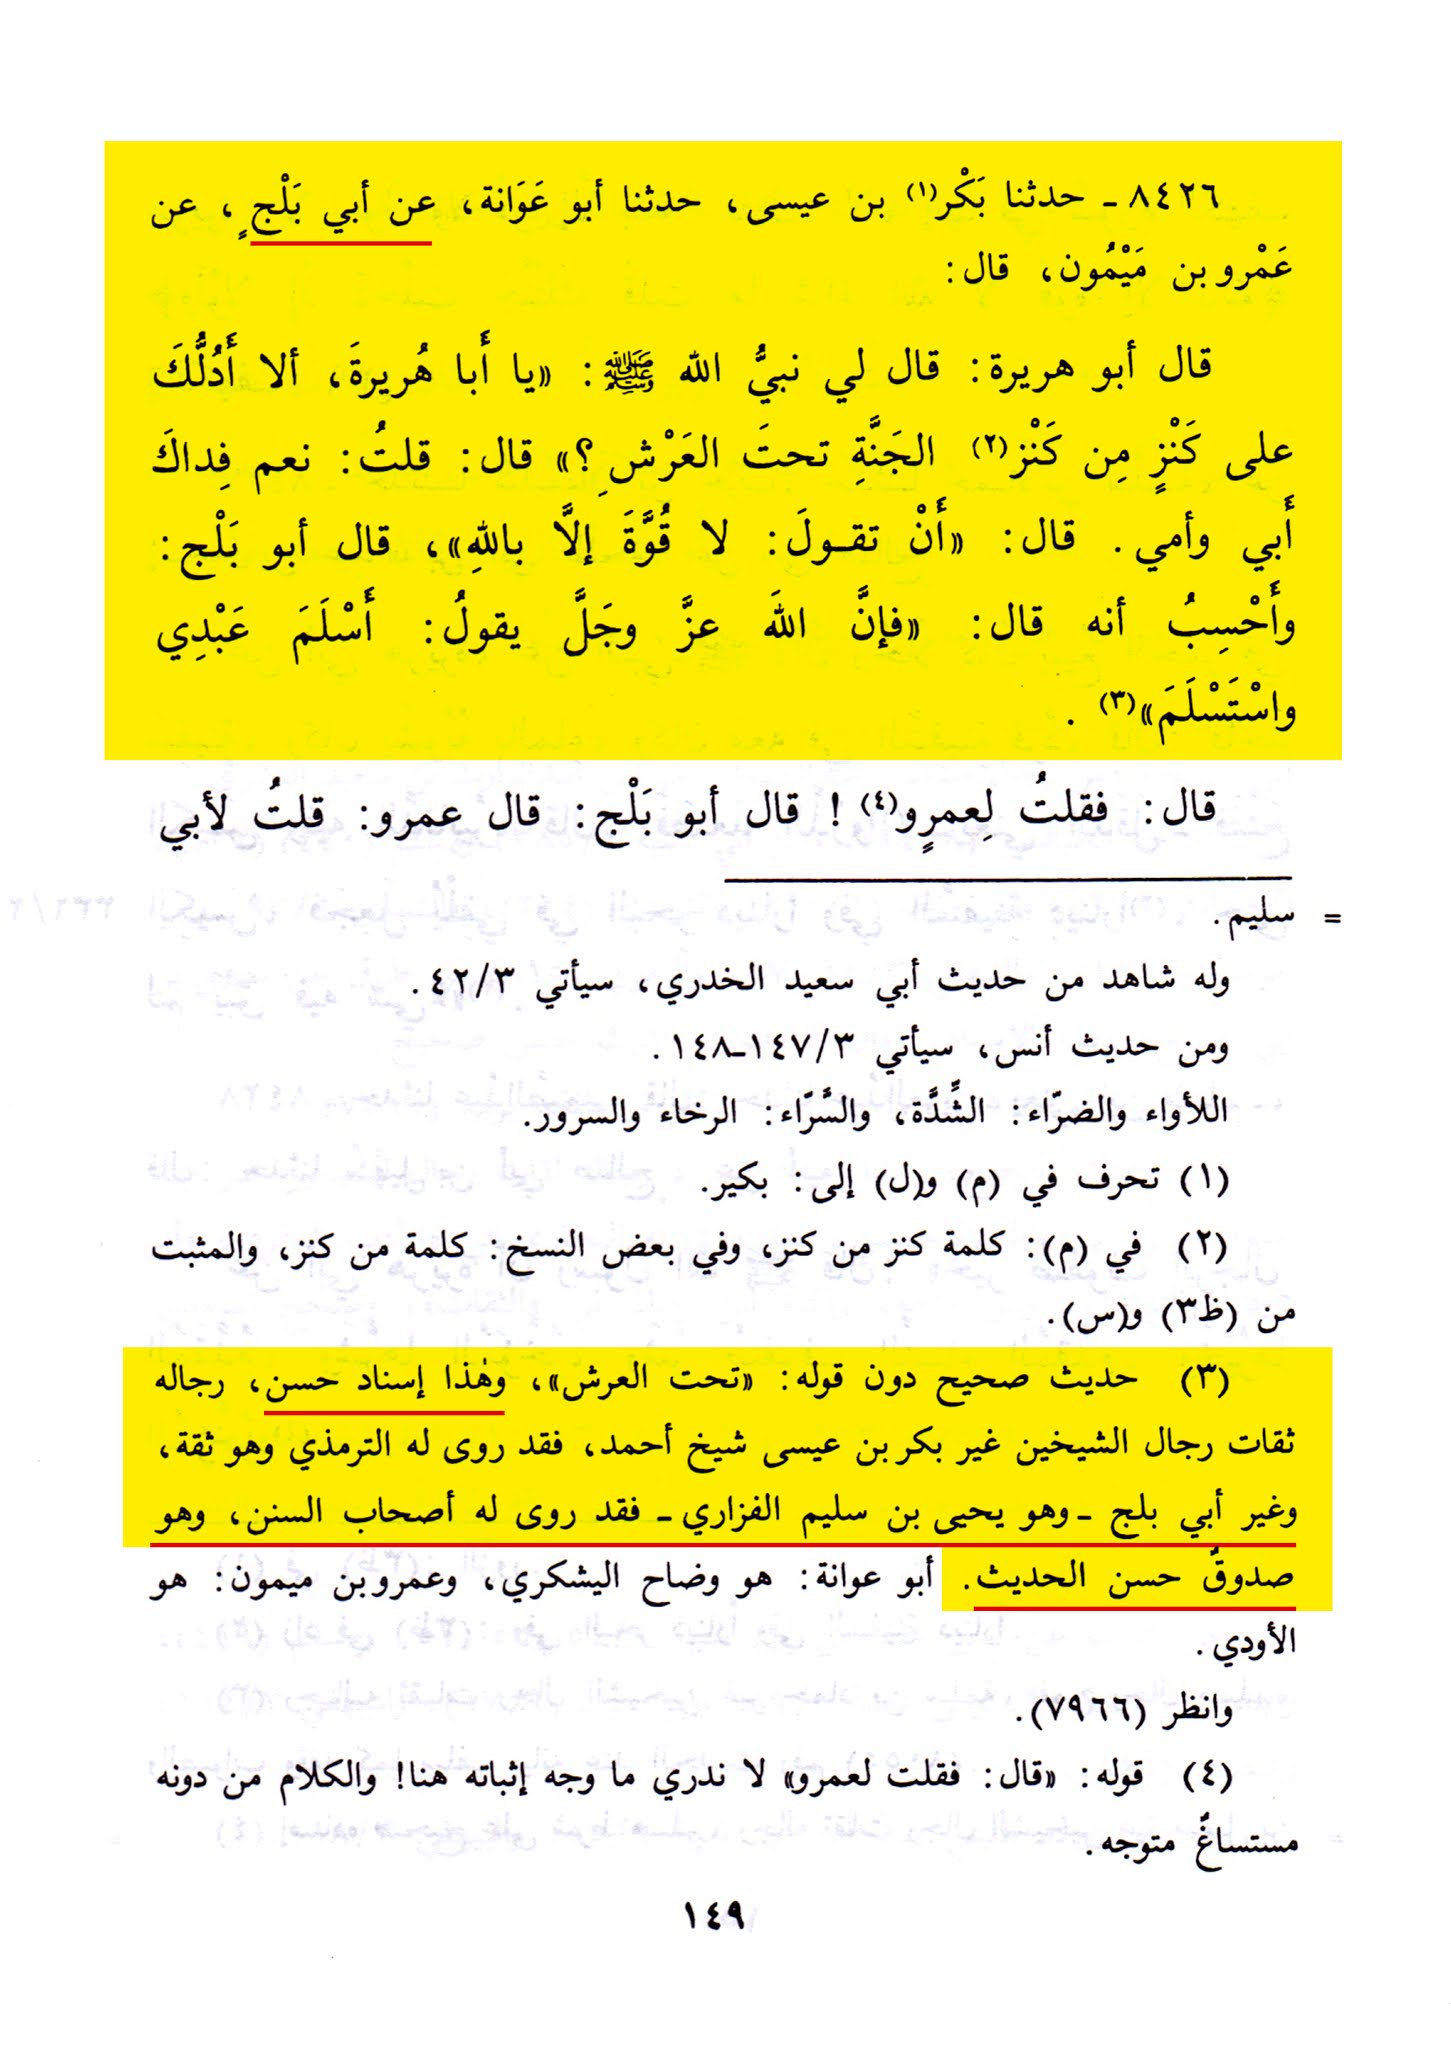 ٨٤٢٦ ـ حدثنا بَكْر(١) بن عيسى، حدثنا أبو عَوَانة، عن أبي بَلْجٍ، عن
عَمْرو بن مَيْمُون، قال:
قال أبو هريرة: قال لي نبيُّ الله ﷺ: «يا أَبا هُريرةَ، ألا أَدُلُّكَ
على كَنْزٍ مِن كَنْز(٢) الجَنَّةِ تحتَ العَرْشِ؟» قال: قلتُ: نعم فِداكَ
أَبي وأمي. قال: «أَنْ تقولَ: لا قُوَّةَ إلَّا باللهِ»، قال أبو بَلْج:
وأَحْسِبُ أنه قال: «فإنَّ اللهَ عزَّ وجَلَّ يقولُ: أَسْلَمَ عَبْدِي
واسْتَسْلَمَ»(٣).
قال: فقلتُ لِعمرٍو(٤)! قال أبو بَلْج: قال عمرو: قلتُ لأبي
= سليم.
وله شاهد من حديث أبي سعيد الخدري، سيأتي ٤٢/٣.
ومن حديث أنس، سيأتي ١٤٧/٣-١٤٨.
اللأواء والضرّاء: الشِّدَّة، والسَّرّاء: الرخاء والسرور.
(١) تحرف في (م) و(ل) إلى: بكير.
(٢) في (م): كلمة كنز من كنز، وفي بعض النسخ: كلمة من كنز، والمثبت
من (ظ٣) و(س).
(٣) حديث صحيح دون قوله: «تحت العرش»، وهٰذا إسناد حسن، رجاله
ثقات رجال الشيخين غير بكر بن عيسى شيخ أحمد، فقد روى له الترمذي وهو ثقة،
وغير أبي بلج ـ وهو يحيى بن سليم الفزاري ـ فقد روى له أصحاب السنن، وهو
صدوقٌ حسن الحديث. أبو عوانة: هو وضاح اليشكري، وعمرو بن ميمون: هو
الأودي.
وانظر (٧٩٦٦).
(٤) قوله: «قال: فقلت لعمرو» لا ندري ما وجه إثباته هنا! والكلام من دونه
مستساغٌ متوجه.
١٤٩